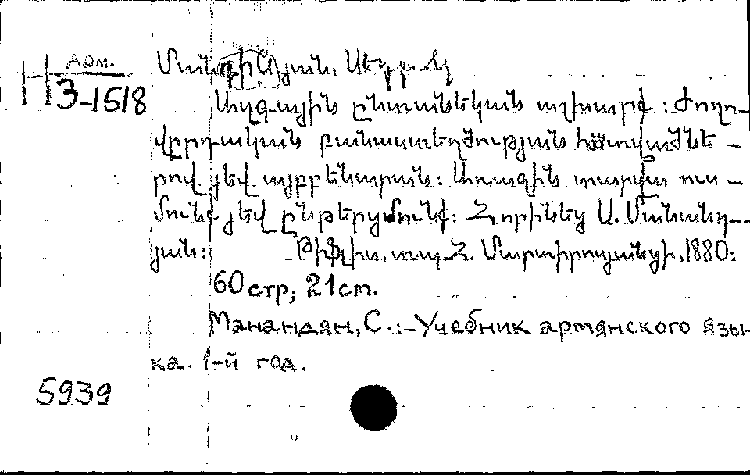 Арм.
Н З-1518
Մանդինյան, Սեդրակ
Ազգային ընտանեկան աշխարհ: Ժողո-
վրդական բանաստեղծության հատվածնե-
րով յեվ այբբենարան: Առաջին տարվա ուս-
մունք յեվ ընթերցմունք: Հորինեց Ս. Մանանդ-
յան: Թիֆլիս, տպ. Հ. Մարտիրոսյանցի, 1880:
60 стр; 21 cm.
Манандян, С. :- Учебник армянского язы-
ка. 1-й год.
5939